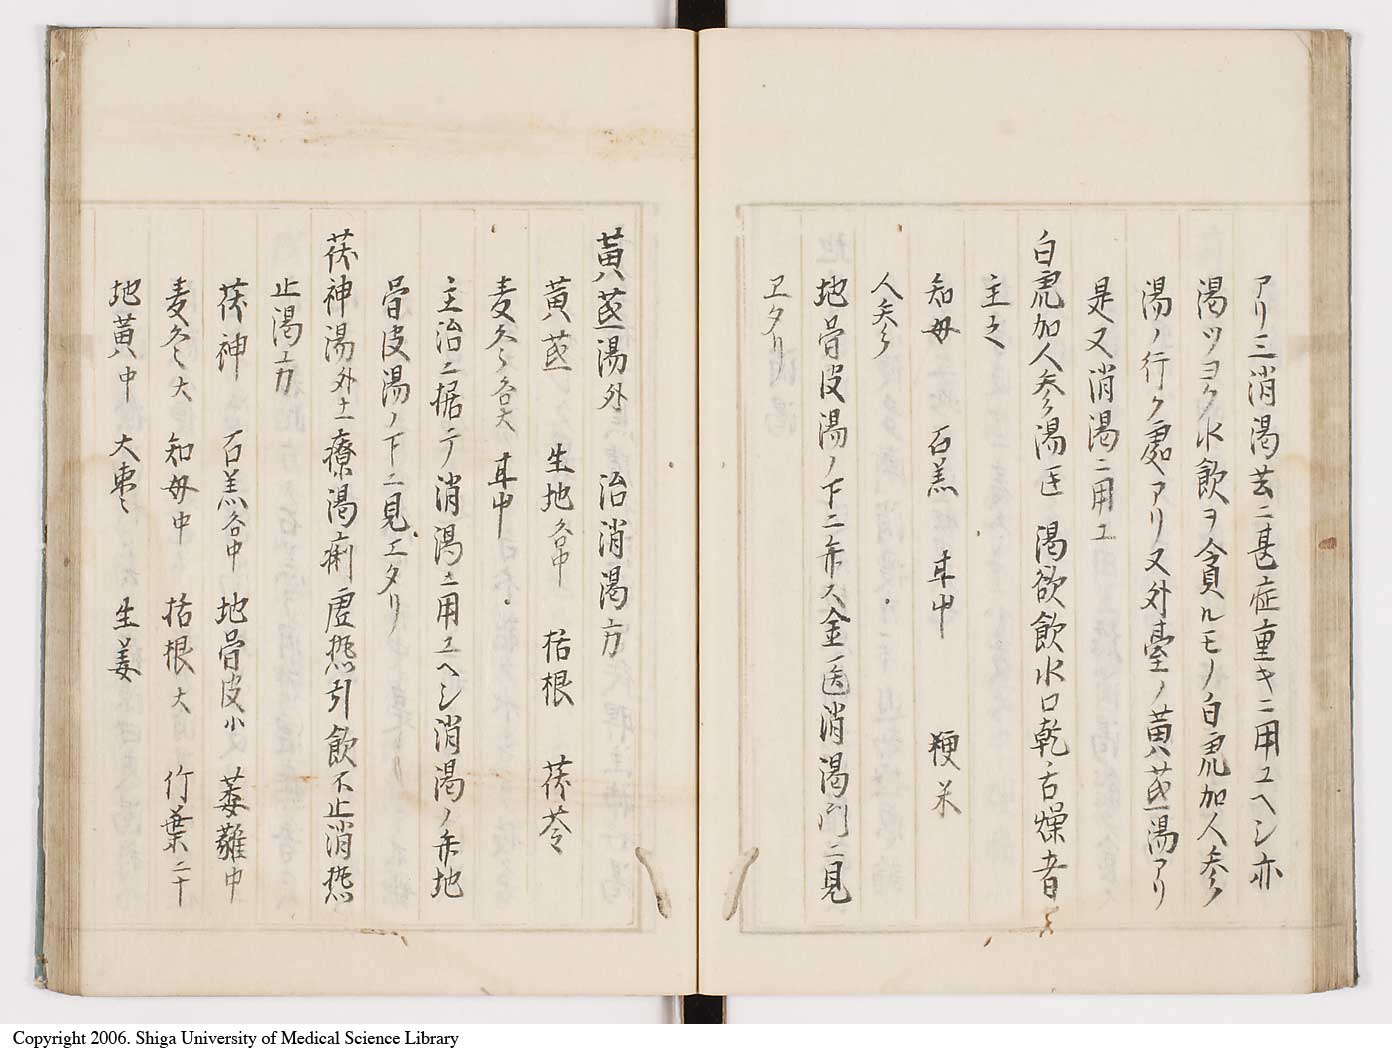 アリ三消渇共ニ甚症重キニ用ユヘシ亦
渇ツヨク水飲ヲ貪ルモノ白虎加人参
湯ノ行ク処アリ又外臺ノ黄芪湯アリ
是又消渇ニ用ユ
白虎加人参湯 渇欲飲水口乾舌燥者
主之
知母 石羔 中 粳米
人参
地骨皮湯ノ下ニ弁ス金匱消渇門ニ見
ヱタリ
黄芪湯外 治消渇方
黄芪 生地各中 括根 茯苓
麦冬各大 中
主治ニ据テ消渇ニ用ユヘシ消渇ノ弁地
骨皮湯ノ下ニ見エタリ
茯神湯外十一療渇痢虚熱引飲不止消熱
止渇方
茯神 石羔各中 地骨皮小 萎蕤中
麦冬大 知母中 括根大 竹葉二十
地黄中 大枣 生姜
Copyright 2006. Shiga University of Medical Science Library